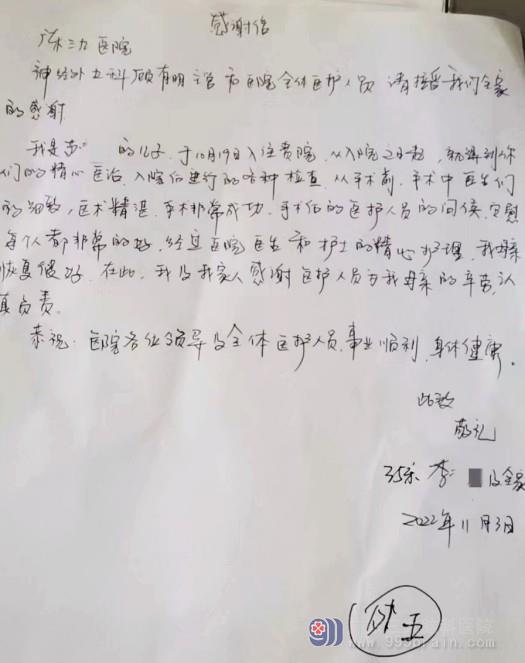 感谢信
广东三九医院
神经外五科顾有明主管和医院全体医护人员 请接受我们全家
的感谢
我是 的儿子,于10月19日入住贵院,从入院之日起,就得到你
们的精心医治,入院后进行的各种检查,从手术前,手术中医生们
的细致,医术精湛,手术非常成功,手术后的医护人员的问候,安慰
每个人都非常的好,经过医院医生和护士的精心护理,我母亲
恢复很好,在此,我及我家人感谢医护人员为我母亲的辛劳,认
真负责。
恭祝:医院各位领导及全体医护人员,事业顺利,身体健康。
此致
敬礼
35床 李 及全家
2022年11月3日
外五
999brain.com